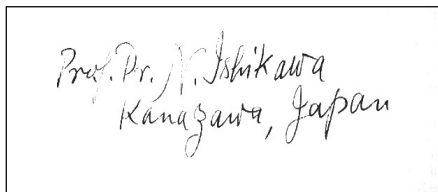 Prof. Dr. N. Ishikawa
Kanazawa, Japan